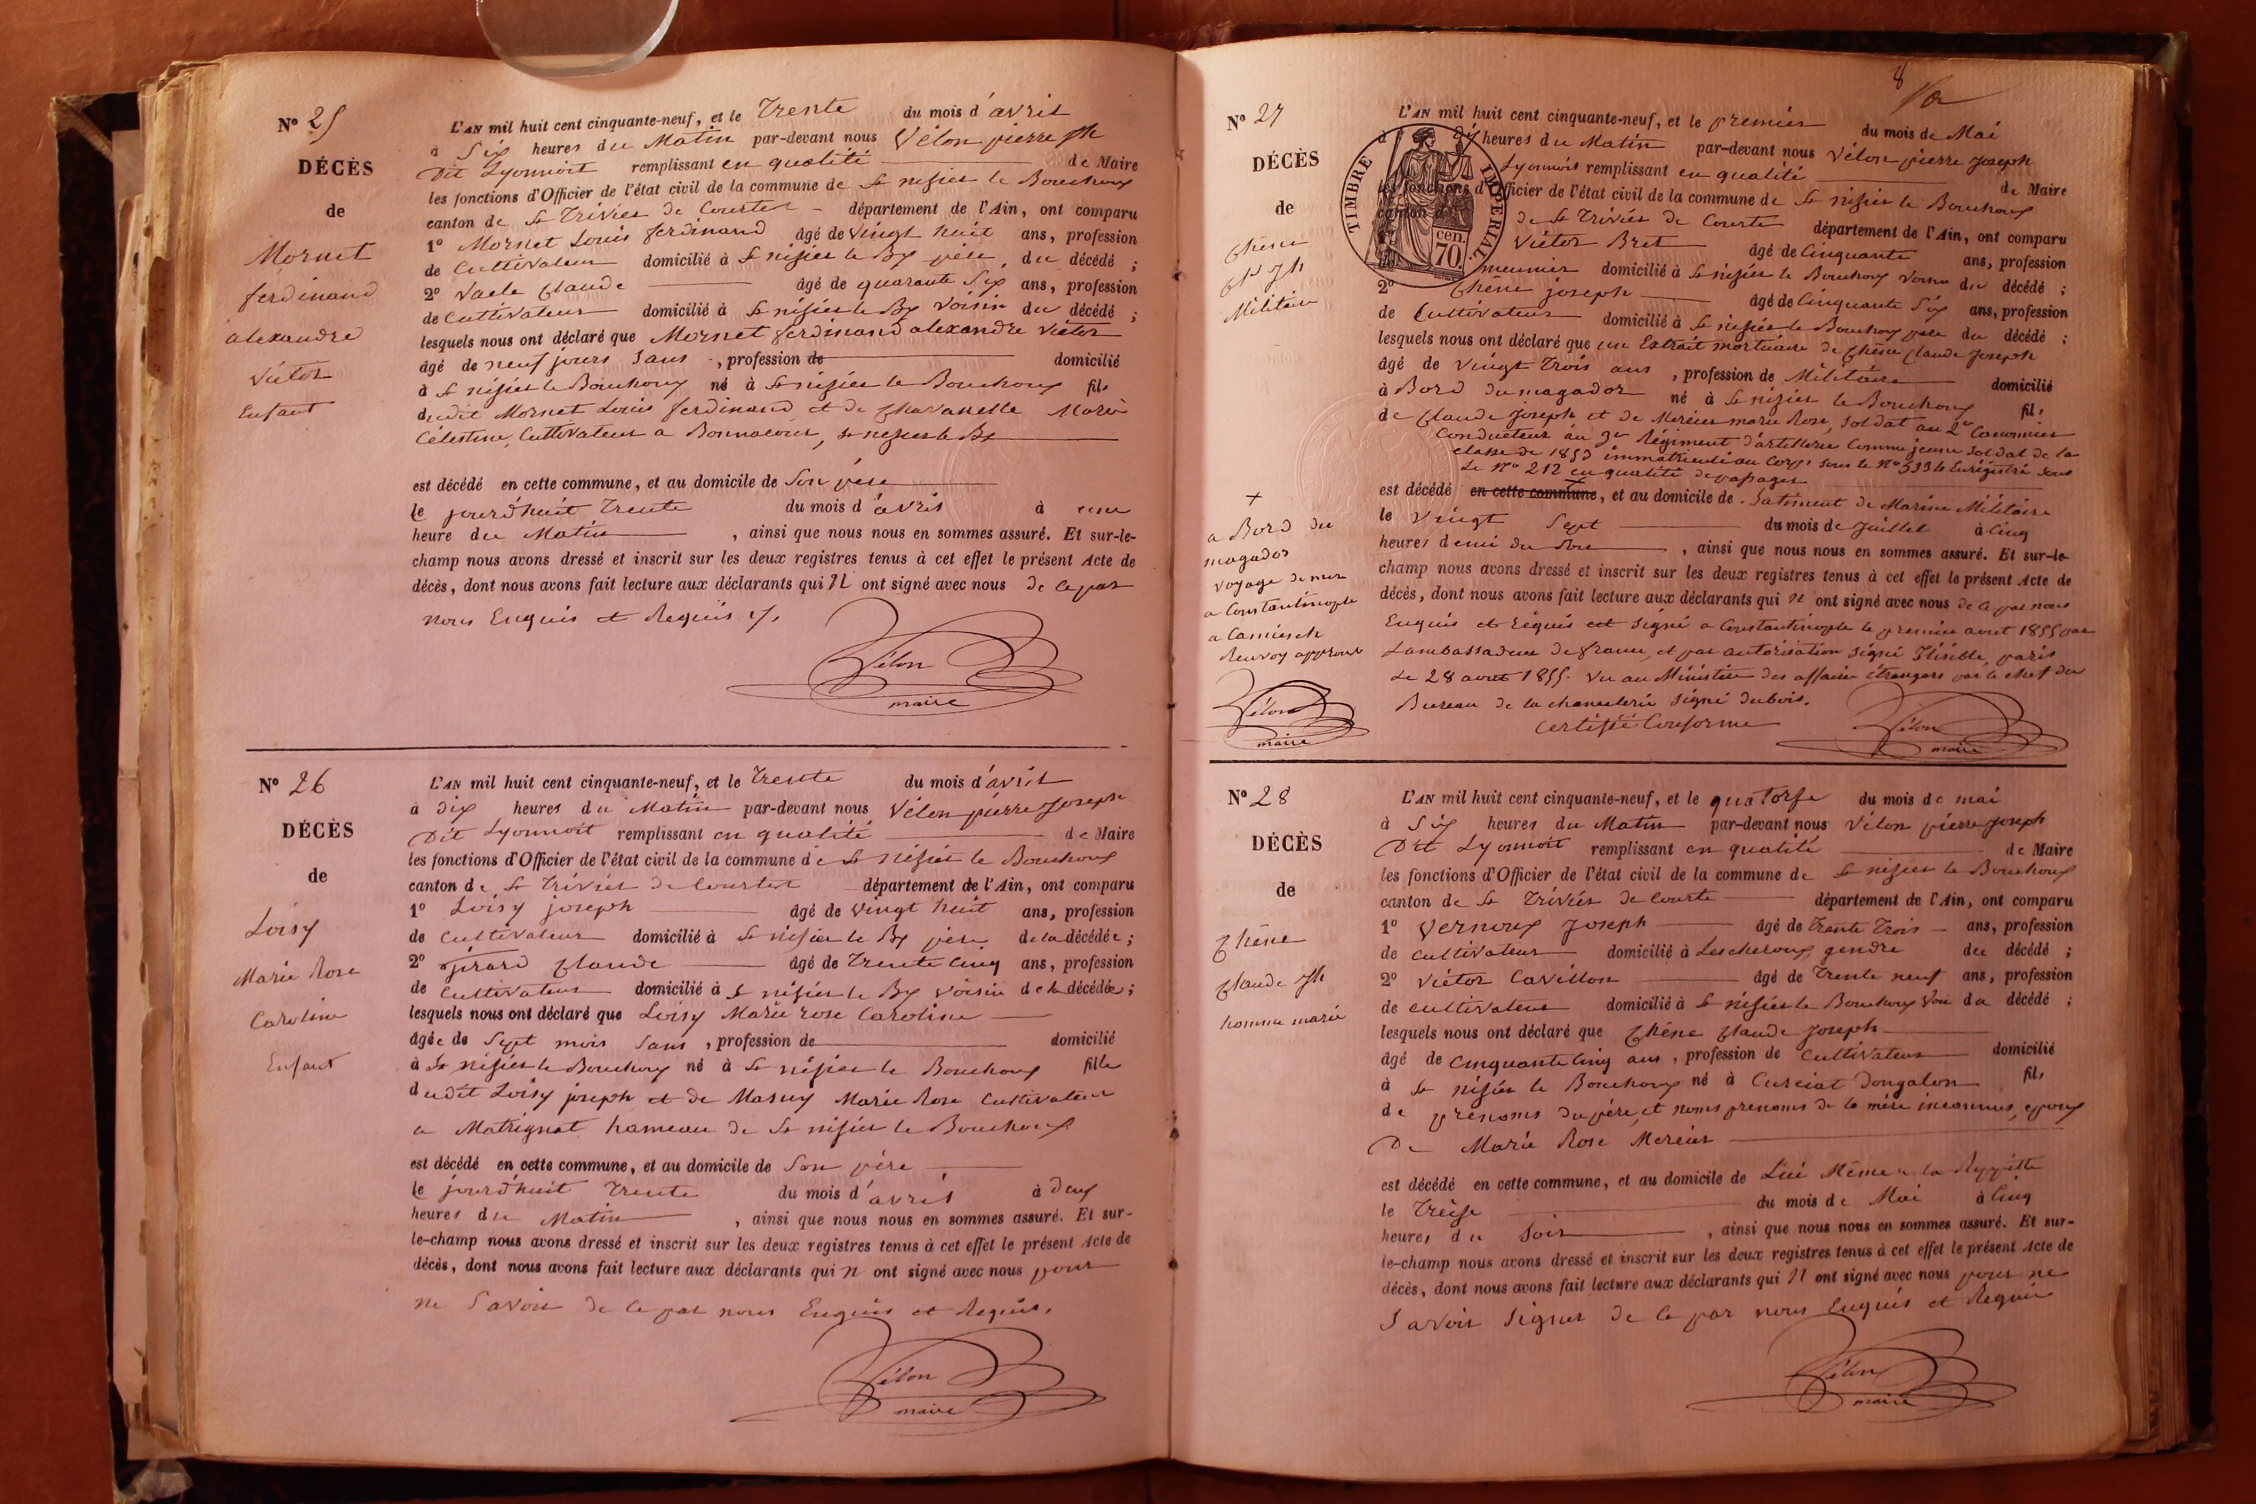 N° 25
DÉCÈS
de
Mornet
ferdinand
alexandre
Victor
Enfant
L'AN mil huit cent cinquante-neuf, et le Trente du mois d'avril
à Six heures du Matin par-devant nous Vélon pierre jh
Dit Lyonnoit remplissant en qualité de Maire
les fonctions d'Officier de l'état civil de la commune de St nisier le Bouchoux
canton de St Trivier de Courtes département de l'Ain, ont comparu
1° Mornet Louis ferdinand âgé de Vingt huit ans, profession
de Cultivateur domicilié à St nisier le Bx père, du décédé ;
2° Vaele Claude âgé de quarante Six ans, profession
de Cultivateur domicilié à St nisier le Bx Voisin du décédé ;
lesquels nous ont déclaré que Mornet ferdinand alexandre Victor
âgé de neuf jours Sans , profession de domicilié
à St nisier le Bouchoux né à St nisier le Bouchoux fils
dudit Mornet Louis ferdinand et de Chavanelle Marie
Célestine, Cultivateur a Bonnacour, St nisier le Bx
est décédé en cette commune, et au domicile de Son père
le jourd'huit Trente du mois d'avril à une
heure du Matin , ainsi que nous nous en sommes assuré. Et sur-le-
champ nous avons dressé et inscrit sur les deux registres tenus à cet effet le présent Acte de
décès, dont nous avons fait lecture aux déclarants qui N ont signé avec nous de ce par
nous Enquis et Requis
Vélon
maire
N° 26
DÉCÈS
de
Loisy
Marie Rose
Caroline
Enfant
L'AN mil huit cent cinquante-neuf, et le Trente du mois d'avril
à Dix heures du Matin par-devant nous Vélon pierre Joseph
Dit Lyonnoit remplissant en qualité de Maire
les fonctions d'Officier de l'état civil de la commune de St nisier le Bouchoux
canton de St Trivier de Courtes département de l'Ain, ont comparu
1° Loisy joseph âgé de Vingt huit ans, profession
de Cultivateur domicilié à St nisier le Bx père de la décédée ;
2° Girard Claude âgé de Trente Cinq ans, profession
de Cultivateur domicilié à St nisier le Bx Voisin de la décédée ;
lesquels nous ont déclaré que Loisy Marie rose Caroline
âgée de Sept mois Sans , profession de domicilié
à St nisier le Bouchoux né à St nisier le Bouchoux fille
dudit Loisy joseph et de Masuy Marie Rose Cultivateur
a Matrignat hameau de St nisier le Bouchoux
est décédé en cette commune, et au domicile de Son père
le jourd'huit Trente du mois d'avril à Deux
heures du Matin , ainsi que nous nous en sommes assuré. Et sur-
le-champ nous avons dressé et inscrit sur les deux registres tenus à cet effet le présent Acte de
décès, dont nous avons fait lecture aux déclarants qui N ont signé avec nous pour
ne Savoir de ce par nous Enquis et Requis.
Vélon
maire
8
N° 27
DÉCÈS
de
Chêne
Cd Jh
Militaire
TIMBRE IMPERIAL
70 cen.
L'AN mil huit cent cinquante-neuf, et le premier du mois de Mai
à Dix heures du Matin par-devant nous Vélon pierre Joseph
Lyonnoit remplissant en qualité de Maire
les fonctions d'Officier de l'état civil de la commune de St nisier le Bouchoux
canton de St Trivier de Courte département de l'Ain, ont comparu
Victor Bret âgé de Cinquante ans, profession
meunier domicilié à St nisier le Bouchoux Voisin du décédé ;
2° Chêne joseph âgé de Cinquante Six ans, profession
de Cultivateur domicilié à St nisier le Bouchoux père du décédé ;
lesquels nous ont déclaré que un Extrait mortuaire de Chêne Claude Joseph
âgé de Vingt Trois ans , profession de Militaire domicilié
à Bord du magador né à St nisier le Bouchoux fils
de Claude Joseph et de Mercier marie Rose, Soldat au 2e Canonnier
Conducteur au 3e Régiment d'artillerie Comme jeune Soldat de la
classe de 1853 immatriculé au Corps sous le N° 5334 Enregistré sous
Le N° 212 en qualité de passager
est décédé en cette commune, et au domicile de Batiment de Marine Militaire
le Vingt Sept du mois de Juillet à Cinq
heures demi du Soir , ainsi que nous nous en sommes assuré. Et sur-le-
champ nous avons dressé et inscrit sur les deux registres tenus à cet effet le présent Acte de
décès, dont nous avons fait lecture aux déclarants qui N ont signé avec nous de ce par nous
Enquis et Requis est Signé a Constantinople le premier aout 1855 par
L'ambassadeur de france, et par autorisation Signé Illisible, paris
Le 28 aout 1855. Vu au Ministère des affaires étrangers par le chef du
Bureau de la chancelerie Signé dubois.
Certifié Conforme
Vélon
maire
+
a Bord du
magador
Voyage de mer
a Constantinople
a Camiesch
Renvoy approuvé
Vélon
maire
N° 28
DÉCÈS
de
Chêne
Claude Jh
homme marié
L'AN mil huit cent cinquante-neuf, et le quatorse du mois de mai
à Six heures du Matin par-devant nous Vélon pierre Joseph
Dit Lyonnoit remplissant en qualité de Maire
les fonctions d'Officier de l'état civil de la commune de St nisier le Bouchoux
canton de St Triviés de Courte département de l'Ain, ont comparu
1° Vernoux Joseph âgé de Trante Trois ans, profession
de Cultivateur domicilié à Lescheroux, gendre du décédé ;
2° Victor Cavillon âgé de Trente neuf ans, profession
de Cultivateur domicilié à St nisier le Bouchoux Voi du décédé ;
lesquels nous ont déclaré que Chêne Claude Joseph
âgé de Cinquante Cinq ans , profession de Cultivateur domicilié
à St nisier le Bouchoux né à Curciat Dongalon fils
de prénoms du père, et noms prenoms de la mère inconnus, epoux
De Marie Rose Mercier
est décédé en cette commune, et au domicile de Lui Même a la
le Treise du mois de Mai à Cinq
heures du Soir , ainsi que nous nous en sommes assuré. Et sur-
le-champ nous avons dressé et inscrit sur les deux registres tenus à cet effet le présent Acte de
décès, dont nous avons fait lecture aux déclarants qui N ont signé avec nous pour ne
Savoir Signer de ce par nous Enquis et Requis
Vélon
maire